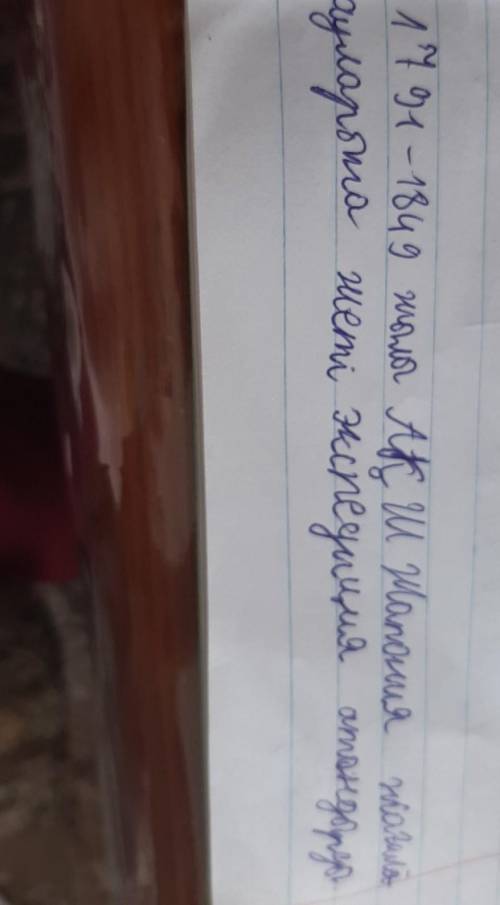 1791-1849 жылы АҚШ Жапония жағала
ауларына жеті экспедиция аттандырды